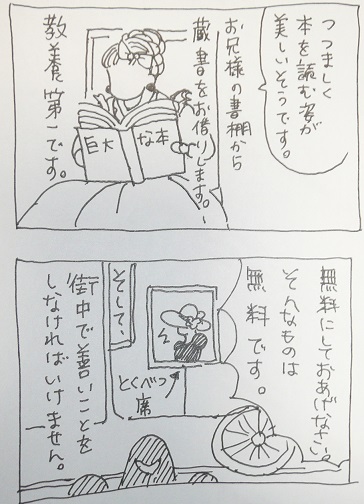 つつましく
本を読む姿が
美しいそうです。
お兄様の書棚から
蔵書をお借りします。
教養第一です。
巨大
な本
無料にしておあげなさい。
そんなものは
無料です。
そして、
とくべつ
席
街中で善いことを
しなければいけません。